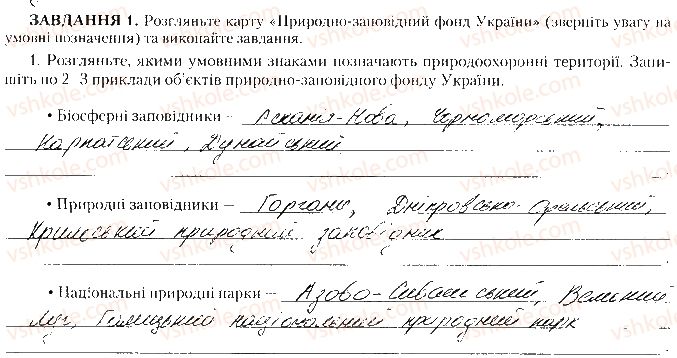 ЗАВДАННЯ 1. Розгляньте карту «Природно-заповідний фонд України» (зверніть увагу на
умовні позначення) та виконайте завдання.
1. Розгляньте, якими умовними знаками позначають природоохоронні території. Запи-
шіть по 2–3 приклади об'єктів природно-заповідного фонду України.
• Біосферні заповідники – Асканія-Нова, Чорноморський,
Карпатський, Дунайський
• Природні заповідники – Горгани, Дніпровсько-Орельський,
Кримський природний заповідник
• Національні природні парки – Азово-Сиваський, Великий
Луг, Галицький національний природний парк
vshkole.com